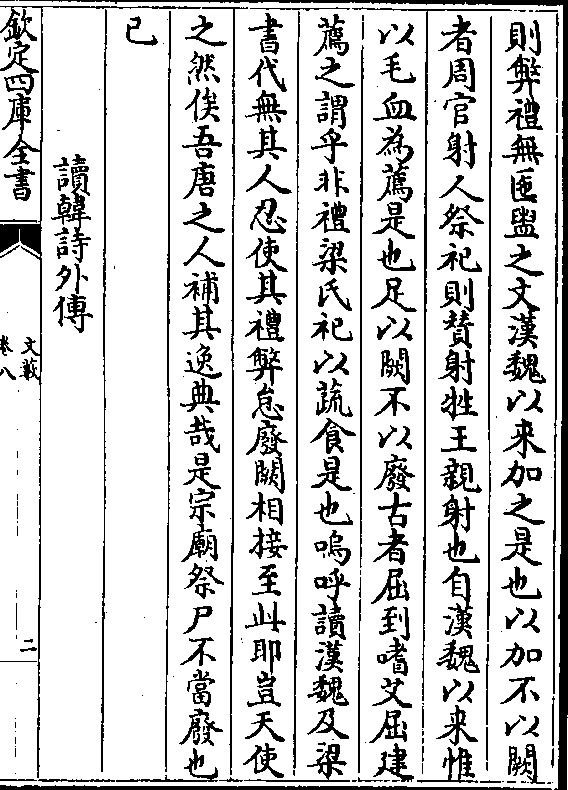 則弊禮無匜盥之文漢魏以来加之是也以加不以闕
者周官射人祭祀則賛射牲王親射也自漢魏以来惟
以毛血為薦是也足以闕不以廢古者屈到嗜艾屈建
薦之謂乎非禮梁氏祀以蔬食是也嗚呼讀漢魏及梁
書代無其人忍使其禮弊怠廢闕相接至此耶豈天使
之然俟吾唐之人補其逸典哉是宗廟祭尸不當廢也
已
讀韓詩外傳
欽定四庫全書
文藪
卷八
二